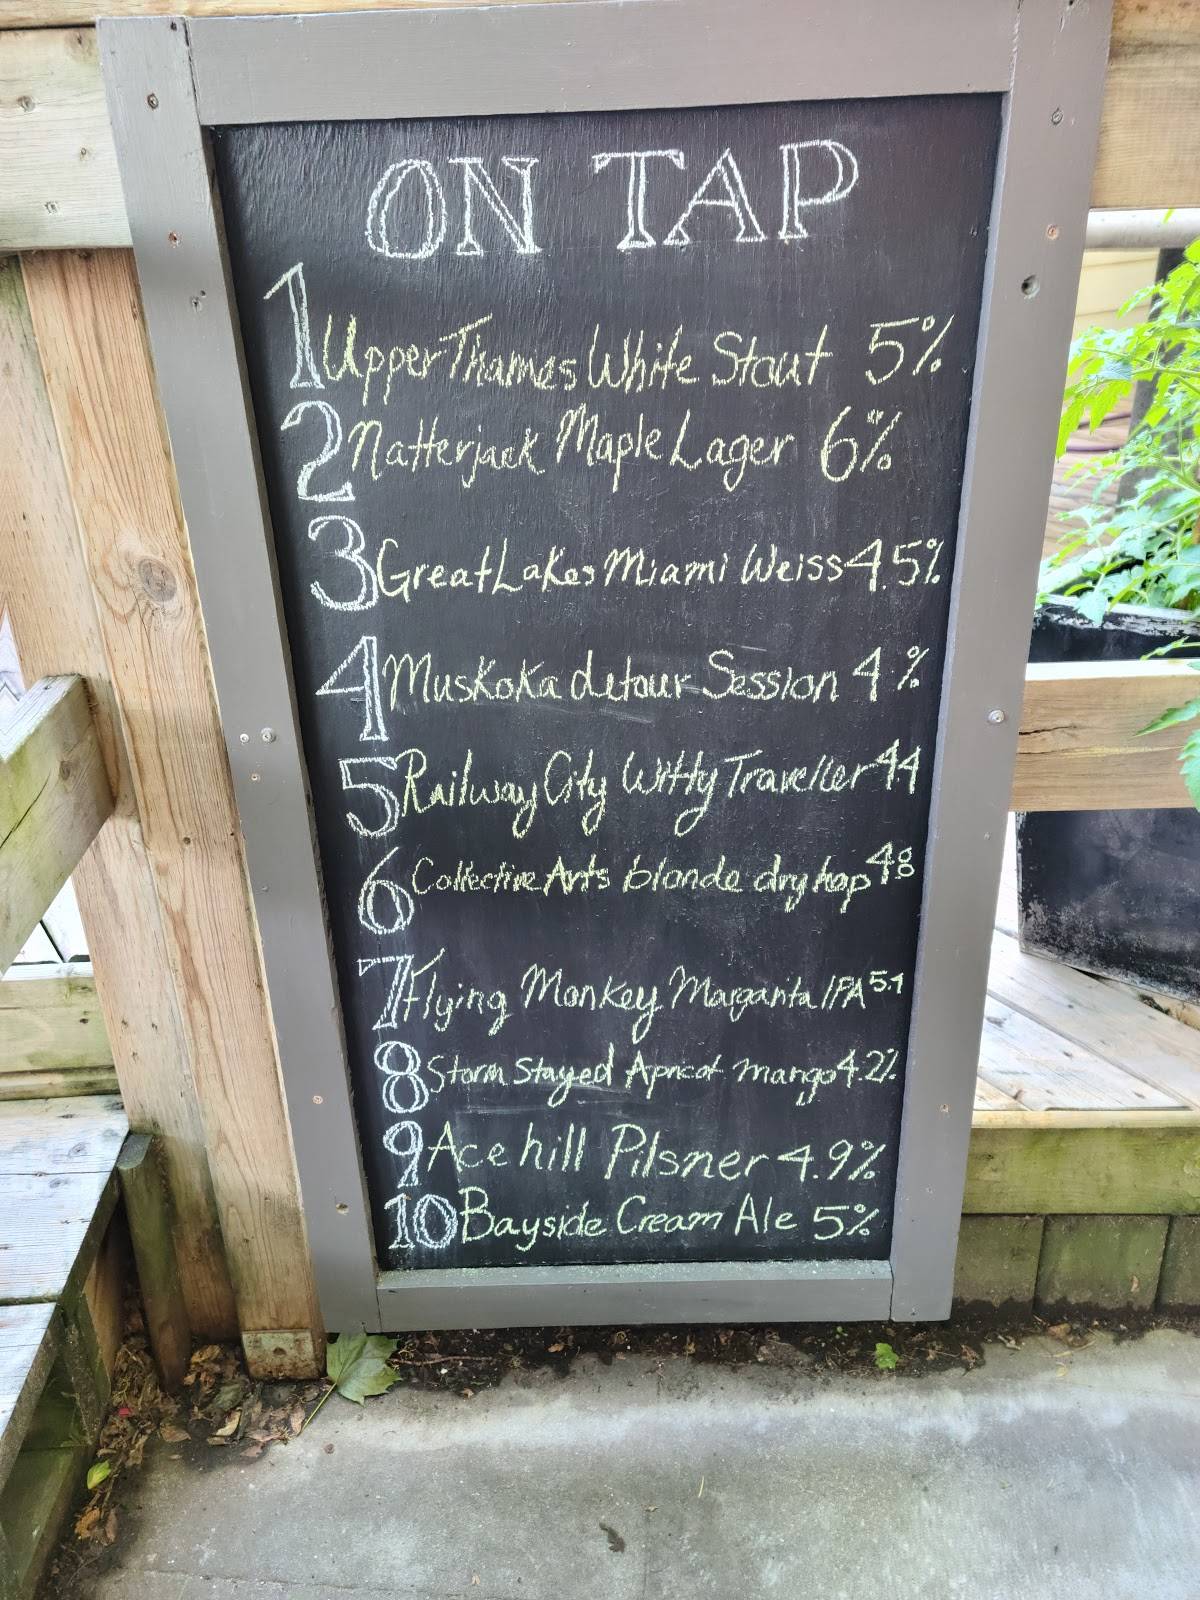 ON TAP
1 Upper Thames White Stout 5%
2 Natterjack Maple Lager 6%
3 Great Lakes Miami Weiss 4.5%
4 Muskoka detour Session 4%
5 Railway City Witty Traveller 4.4
6 Collective Arts blonde dry hop 4.8
7 Flying Monkey Margarita IPA
8 Storm Stayed Apricot mango 4.2%
9 Ace hill Pilsner 4.9%
10 Bayside Cream Ale 5%